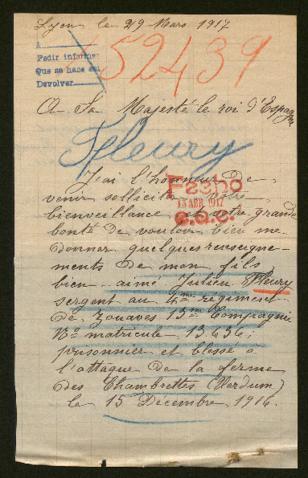 Lyon le 29 Mars 1917
A
Pedir informe
Que se hace en
Devolver
52439
A Sa Majesté le roi d'Espagne
Fleury
J'ai l'honneur de
venir solliciter votre
bienveillance et votre grande
bonté de vouloir bien me
donner quelques renseigne-
ments de mon fils
bien-aimé Julien Fleury
sergent au 4me régiment
de Zouaves Compagnie
No matricule 13636.
prisonnier et blessé à
l'attaque de la ferme
des Chambrettes (Verdun)
le 15 Décembre 1916.
Fecho
13 ABR 1917